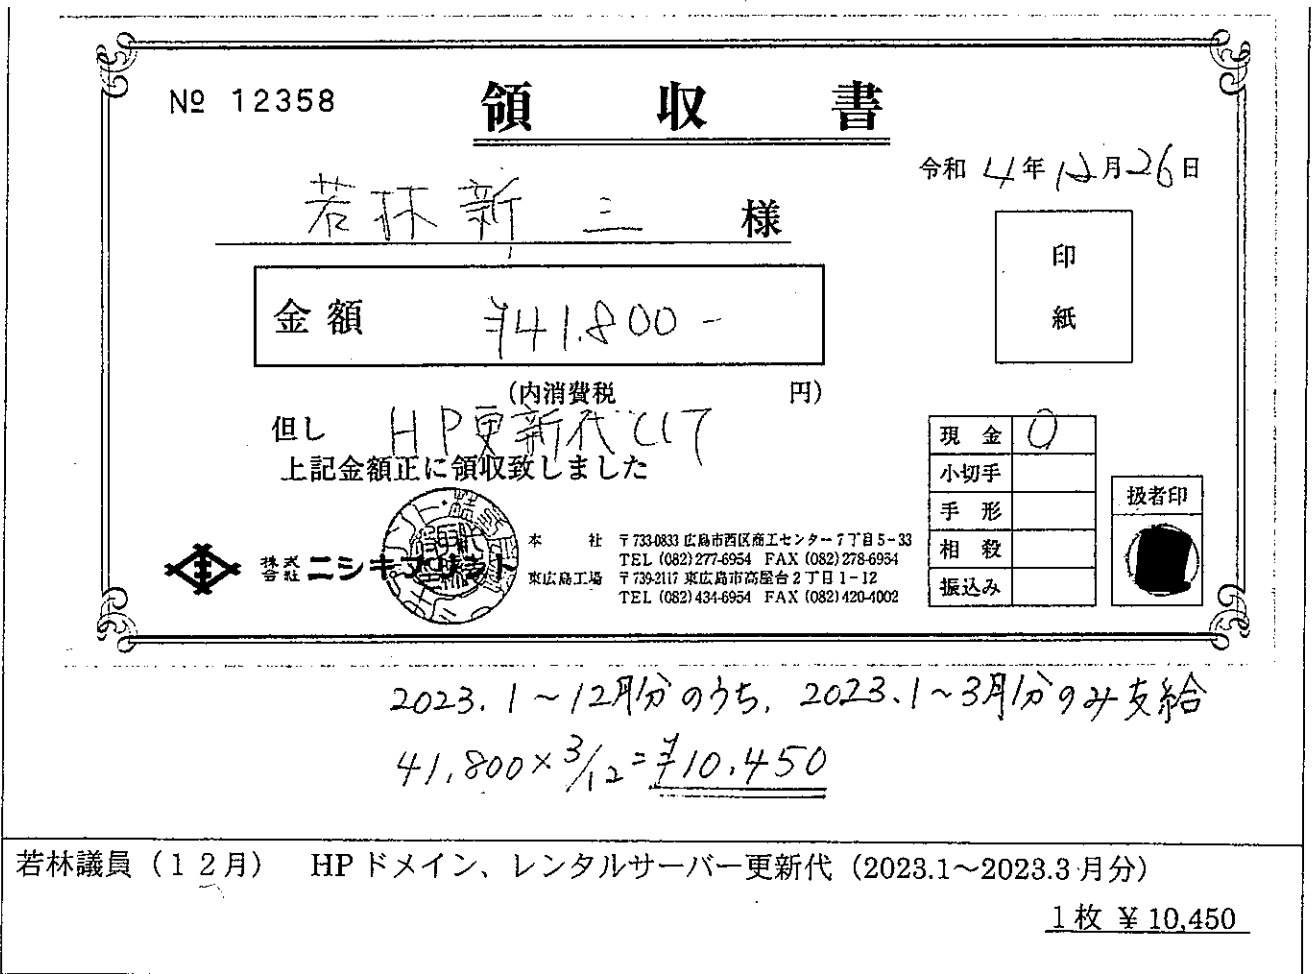 № 12358
領収書
令和 4年12月26日
若林新三 様
印紙
金額 ¥41.800-
(内消費税 円)
但し HP更新代として
上記金額正に領収致しました
現金 0
小切手
手形
相殺
振込み
扱者印
株式会社 ニシキプリント
本社 〒733-0833 広島市西区商工センター7丁目5-33
TEL (082)277-6954 FAX (082)278-6954
東広島工場 〒739-2117 東広島市高屋台2丁目1-12
TEL (082)434-6954 FAX (082)420-4002
2023.1~12月分のうち、2023.1~3月分のみ支給
41,800×3/12=¥10,450
若林議員(12月) HPドメイン、レンタルサーバー更新代(2023.1~2023.3月分)
1枚 ¥10,450